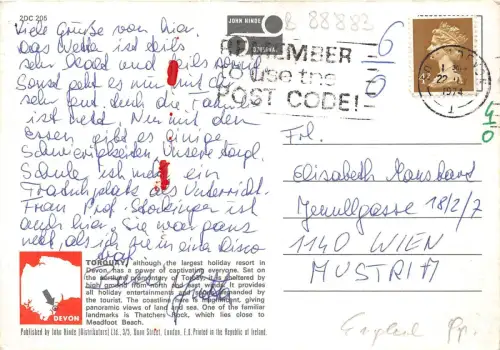 2DC 205
Viele Grüße von hier.
Das Wetter ist teils
sehr und teils sonnig
Sonst geht es mir
sehr gut, denn die
ist nett. Nur mit dem
Essen gibt es einige
Schwierigkeiten. Unsere
Schule, ich mehr ein
als Unterricht.
Frau Prof. ist
auch hier. Sie war ganz
nett, als ich sie in eine Disco
traf.
JOHN HINDE
ORIGINAL
B 88883
60
REMEMBER
to use the
POST CODE!
22
1974
Frl.
Elisabeth
18/2/7
1140 WIEN
AUSTRIA
40
England
TORQUAY, although the largest holiday resort in
Devon, has a power of captivating everyone. Set on
the sunniest of Torquay is sheltered by
high ground from north and east winds. It provides
all holiday entertainments demanded by
the tourist. The coastline here is magnificent, giving
panoramic views of land and sea. One of the familiar
landmarks is Thatchers Rock, which lies close to
Meadfoot Beach.
DEVON
Published by John Hinde (Distributors) Ltd., 3/5, Dean Street, London, E.3. Printed in the Republic of Ireland.